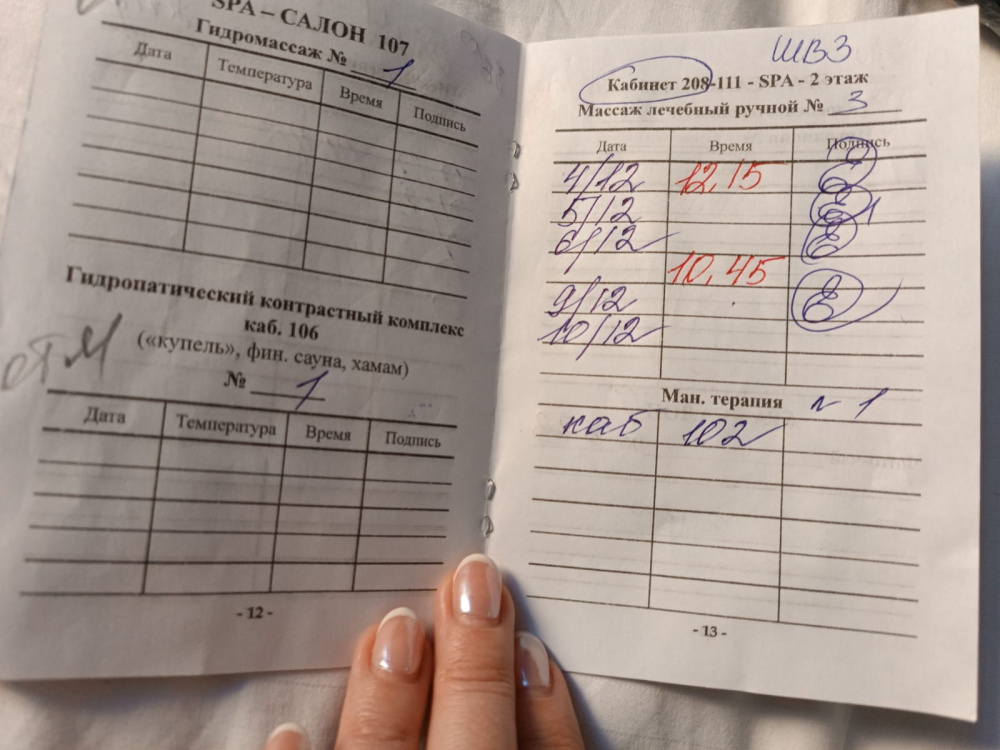 SPA – САЛОН 107
Гидромассаж № 1
Дата Температура Время Подпись
Гидропатический контрастный комплекс
каб. 106
(«купель», фин. сауна, хамам)
№ 1
Дата Температура Время Подпись
- 12 -
ШВЗ
Кабинет 208-111 - SPA - 2 этаж
Массаж лечебный ручной № 3
Дата Время Подпись
4/12 12,15
5/12
6/12
10,45
9/12
10/12
Ман. терапия n 1
каб 102
- 13 -